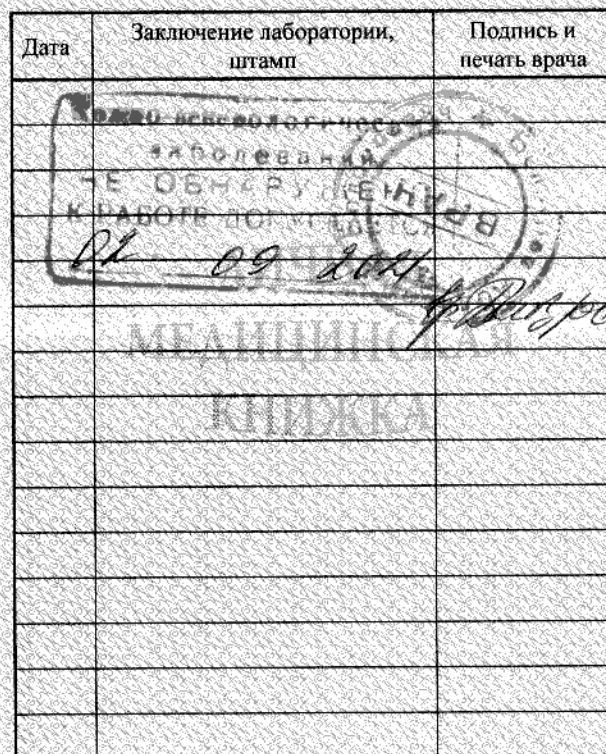 Дата
Заключение лаборатории,
штамп
Подпись и
печать врача
Кожно венерологических
заболеваний
НЕ ОБНАРУЖЕНО
К РАБОТЕ ДОПУСКАЕТСЯ
ВРАЧ
02 09 2021
МЕДИЦИНСКАЯ
КНИЖКА